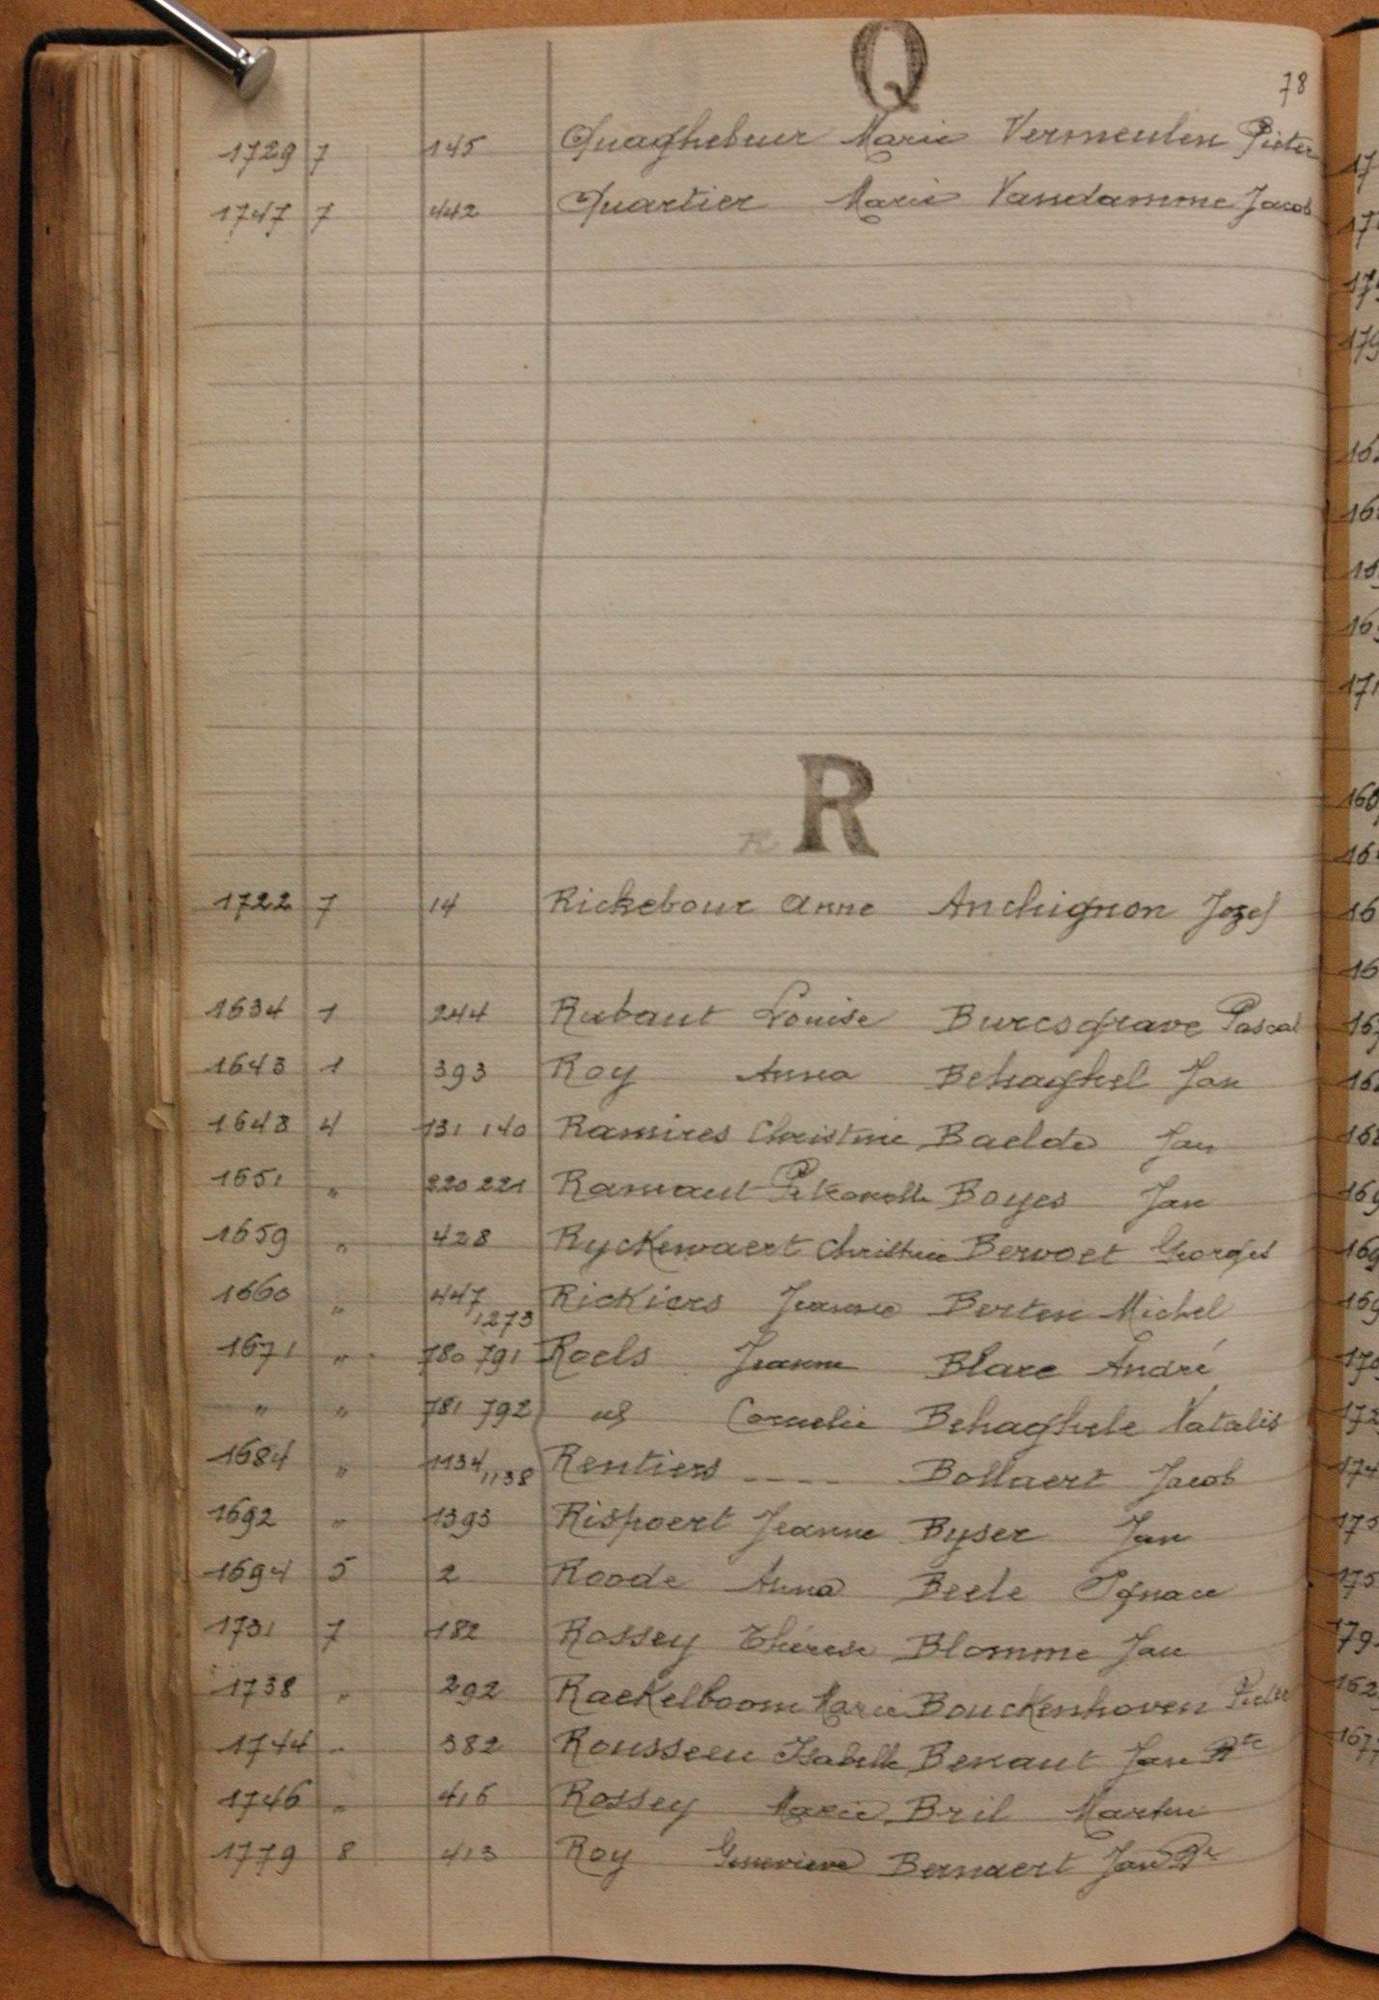 Q
78
1729 7 145 Quaghebeur Marie Vermeulen Pieter
1747 7 442 Quartier Marie Vandamme Jacob
R
1722 7 14 Rickebour Anne Anchignon Jozef
1634 1 244 Rubaut Louise Burcsgrave Pascal
1643 1 393 Roy Anna Behaghel Jan
1648 4 131 140 Ramires Christine Baelde Jan
1651 " 220 221 Ramaut Boyes Jan
1659 " 428 Ryckewaert Christine Bervoet Georges
1660 " 447 1273 Rickiers Jeanne Berten Michel
1671 " 780 791 Roels Jeanne Blare André
" " 781 792 Cornelie Behaghele Natalis
1684 " 1134 1138 Rentiers ---- Bollaert Jacob
1692 " 1393 Rispoert Jeanne Byser Jan
1694 5 2 Roode Anna Beele Ignace
1731 7 182 Rossey Thérese Blomme Jan
1738 " 292 Raekelboom Marie Bouckenhoven Pieter
1744 " 382 Rousseeu Isabelle Benaut Jan Bte
1746 " 416 Rossey Marie Bril Martin
1779 8 413 Roy Genevieve Bernaert Jan